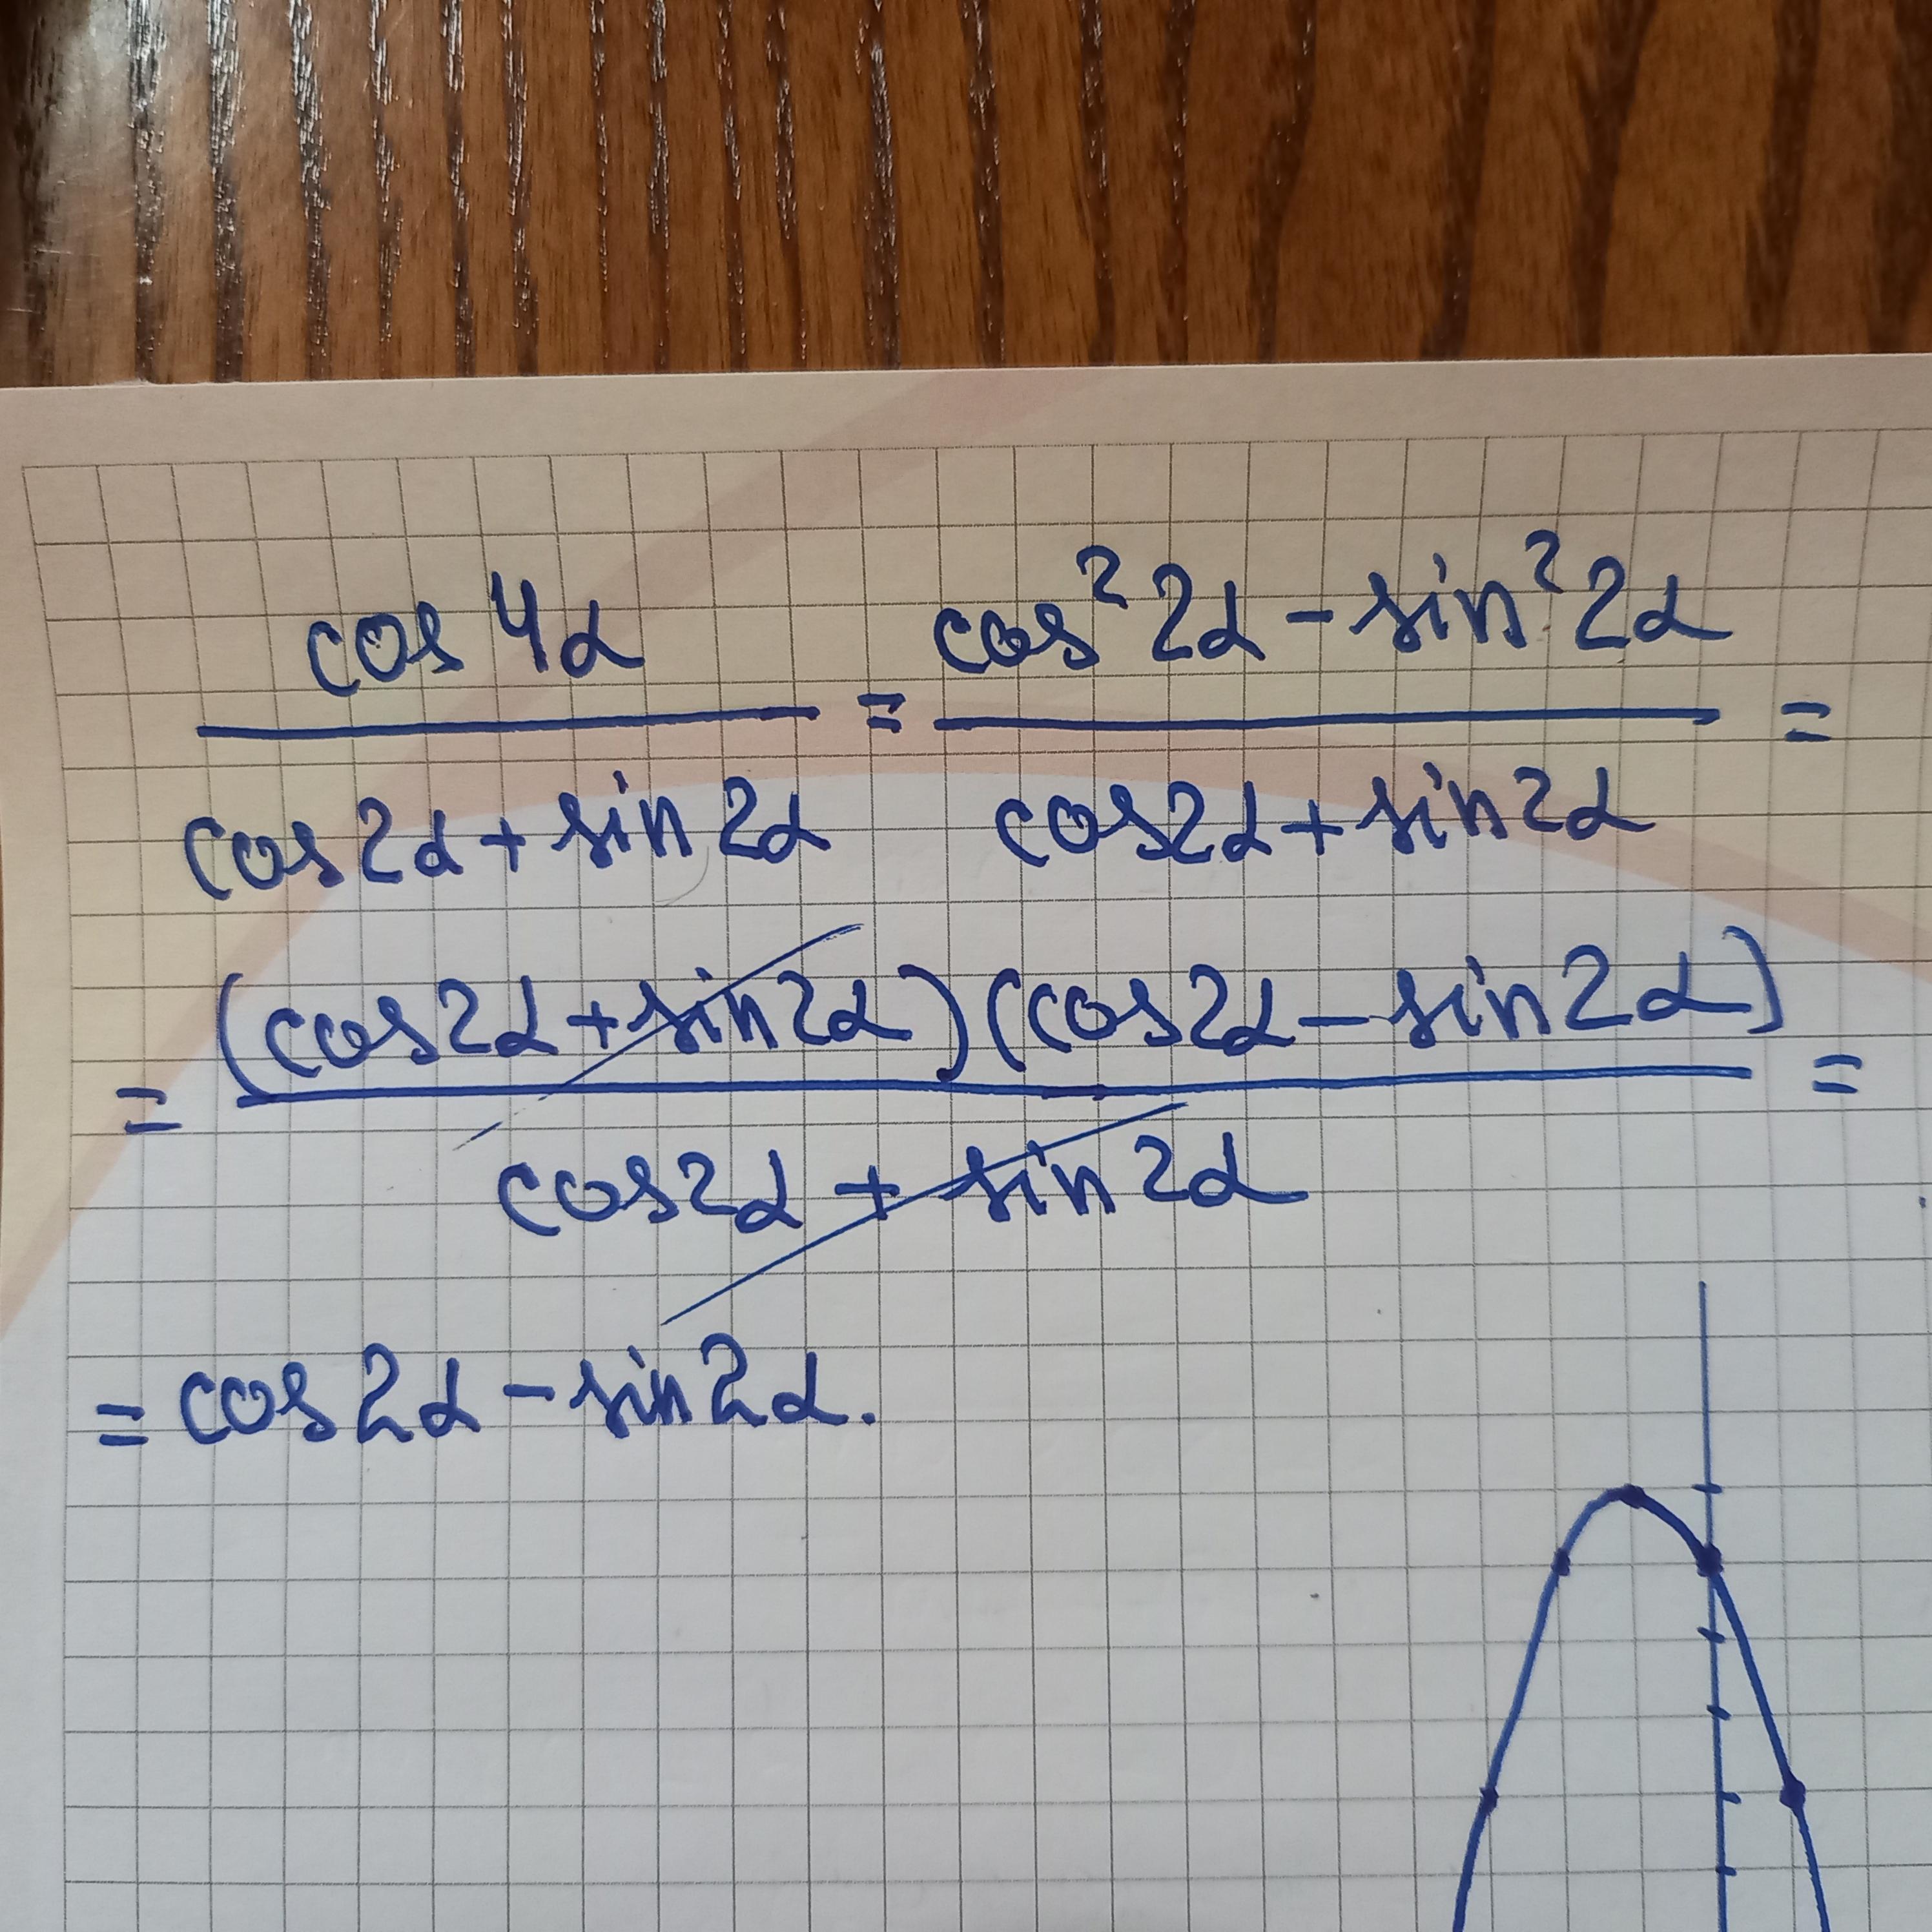 cos 4α / cos 2α + sin 2α = cos² 2α - sin² 2α / cos 2α + sin 2α =
= (cos 2α + sin 2α)(cos 2α - sin 2α) / cos 2α + sin 2α =
= cos 2α - sin 2α.